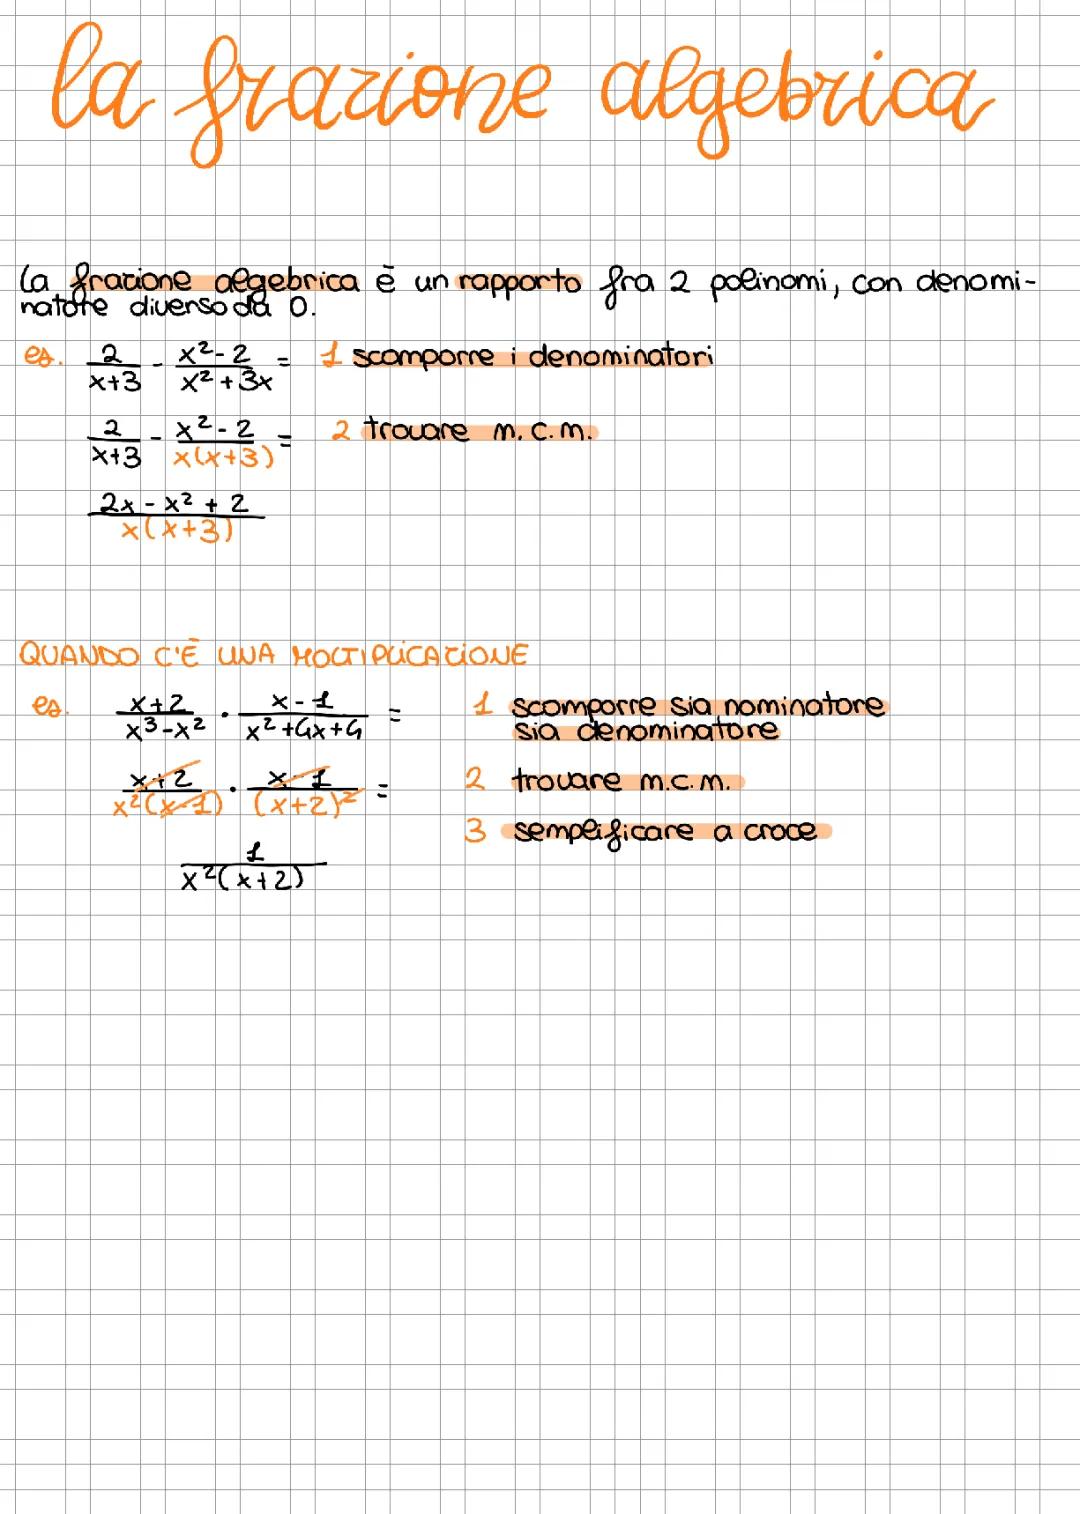 la frazione algebrica
La frazione algebrica è un rapporto fra 2 polinomi, con denomi-
natore diverso da 0.
es. 2/(x+3) - (x²-2)/(x²+3x) = 1 scomporre i denominatori
2/(x+3) - (x²-2)/(x(x+3)) = 2 trovare m.c.m.
(2x-x²+2)/(x(x+3))
QUANDO C'È UNA MOLTIPLICAZIONE
es. (x+2)/(x³-x²) · (x-1)/(x²+4x+4) = 1 scomporre sia nominatore
sia denominatore
(x+2)/(x²(x-1)) · (x-1)/((x+2)²) = 2 trovare m.c.m.
3 semplificare a croce
1/(x²(x+2))